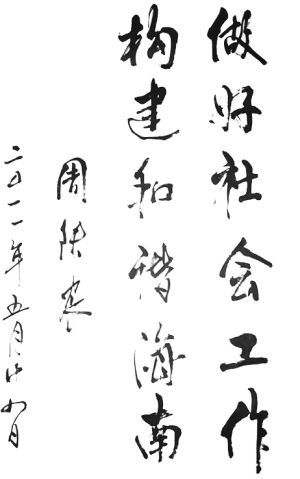 做好社会工作
构建和谐海南
周铁农
二〇一一年五月日